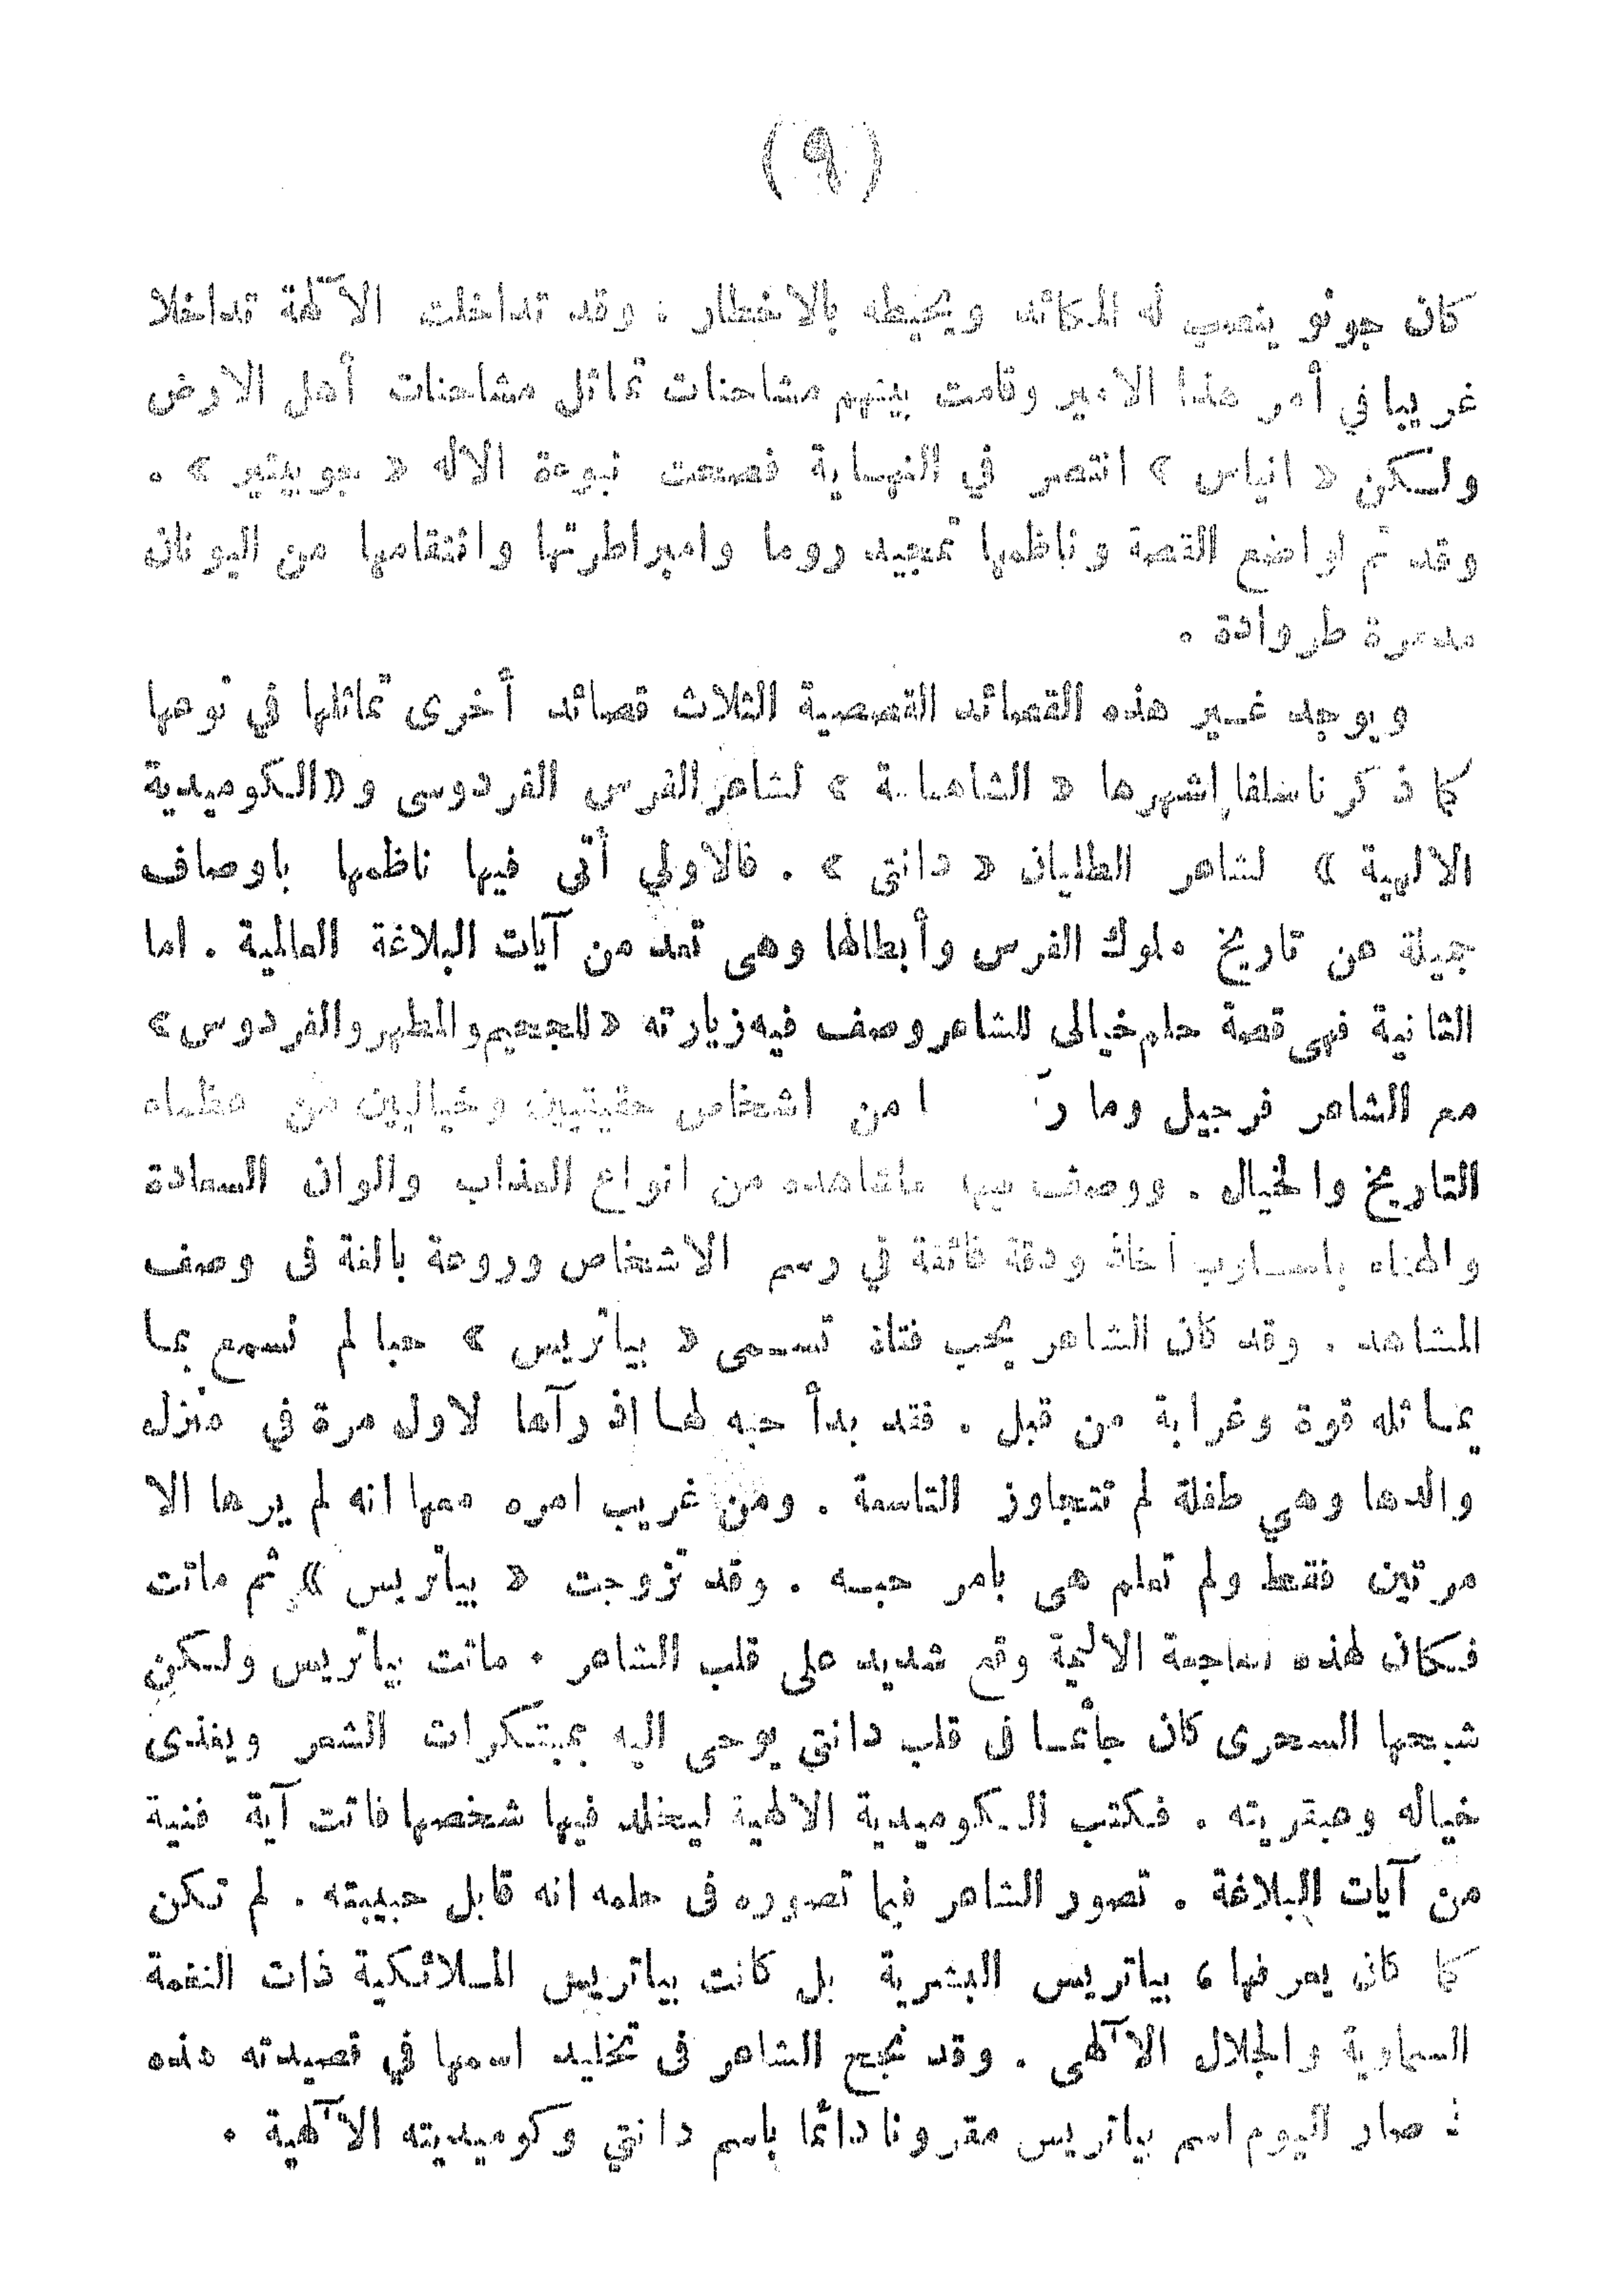 (٩)
كان جونو ينصب له المكائد ويحيطه بالاخطار . وقد تداخلت الآلهة تداخلا
غريبا في أمر هذا الامير وقامت بينهم مشاحنات تماثل مشاحنات أهل الارض
ولكن « انياس » انتصر في النهاية فصحت نبوءة الاله « جوبيتير » .
وقد تم لواضع القصة وناظمها تمجيد روما وامبراطرتها وانتقامها من اليونان
مدمرة طروادة .
ويوجد غير هذه القصائد القصصية الثلاث قصائد أخرى تماثلها في نوعها
كما ذكرنا سلفا اشهرها « الشاهـامة » لشاعر الفرس الفردوسى و«الكوميدية
الالهية » لشاعر الطليان « دانتى » . فالاولي أتى فيها ناظمها باوصاف
جميلة عن تاريخ ملوك الفرس وأبطالها وهى تعد من آيات البلاغة العالمية . اما
الثانية فهى قصة حلم خيالى للشاعر وصف فيه زيارته «للجحيم والمطهر والفردوس»
مع الشاعر فرجيل وما من اشخاص حقيقيين وخياليين من عظماء
التاريخ والخيال . ووصف فيها ماشاهده من انواع العذاب والوان السعادة
والهناء باسلوب أخاذ ودقة فائقة في رسم الاشخاص وروعة بالغة فى وصف
المشاهد . وقد كان الشاعر يحب فتاة تسمى « بياتريس » حبا لم نسمع بما
يماثله قوة وغرابة من قبل . فقد بدأ حبه لها اذ رآها لاول مرة في منزل
والدها وهي طفلة لم تتجاوز التاسعة . ومن غريب امره معها انه لم يرها الا
مرتين فقط ولم تعلم هى بامر حبه . وقد تزوجت « بياتريس » ثم ماتت
فكان لهذه الفاجعة الاليمة وقع شديد على قلب الشاعر . ماتت بياتريس ولكن
شبحها السحرى كان جأثما فى قلب دانتي يوحى اليه بمبتكرات الشعر ويغذى
خياله وعبقريته . فكتب الكوميدية الالهية ليخلد فيها شخصها فاتت آية فنية
من آيات البلاغة . تصور الشاعر فيما تصوره فى حلمه انه قابل حبيبته . لم تكن
كما كان يعرفها ، بياتريس البشرية بل كانت بياتريس الملائكية ذات النغمة
السماوية والجلال الآلهى . وقد نجح الشاعر فى تخليد اسمها في قصيدته هذه
صار اليوم اسم بياتريس مقرونا دائما باسم دانتي وكوميديته الآلهية .